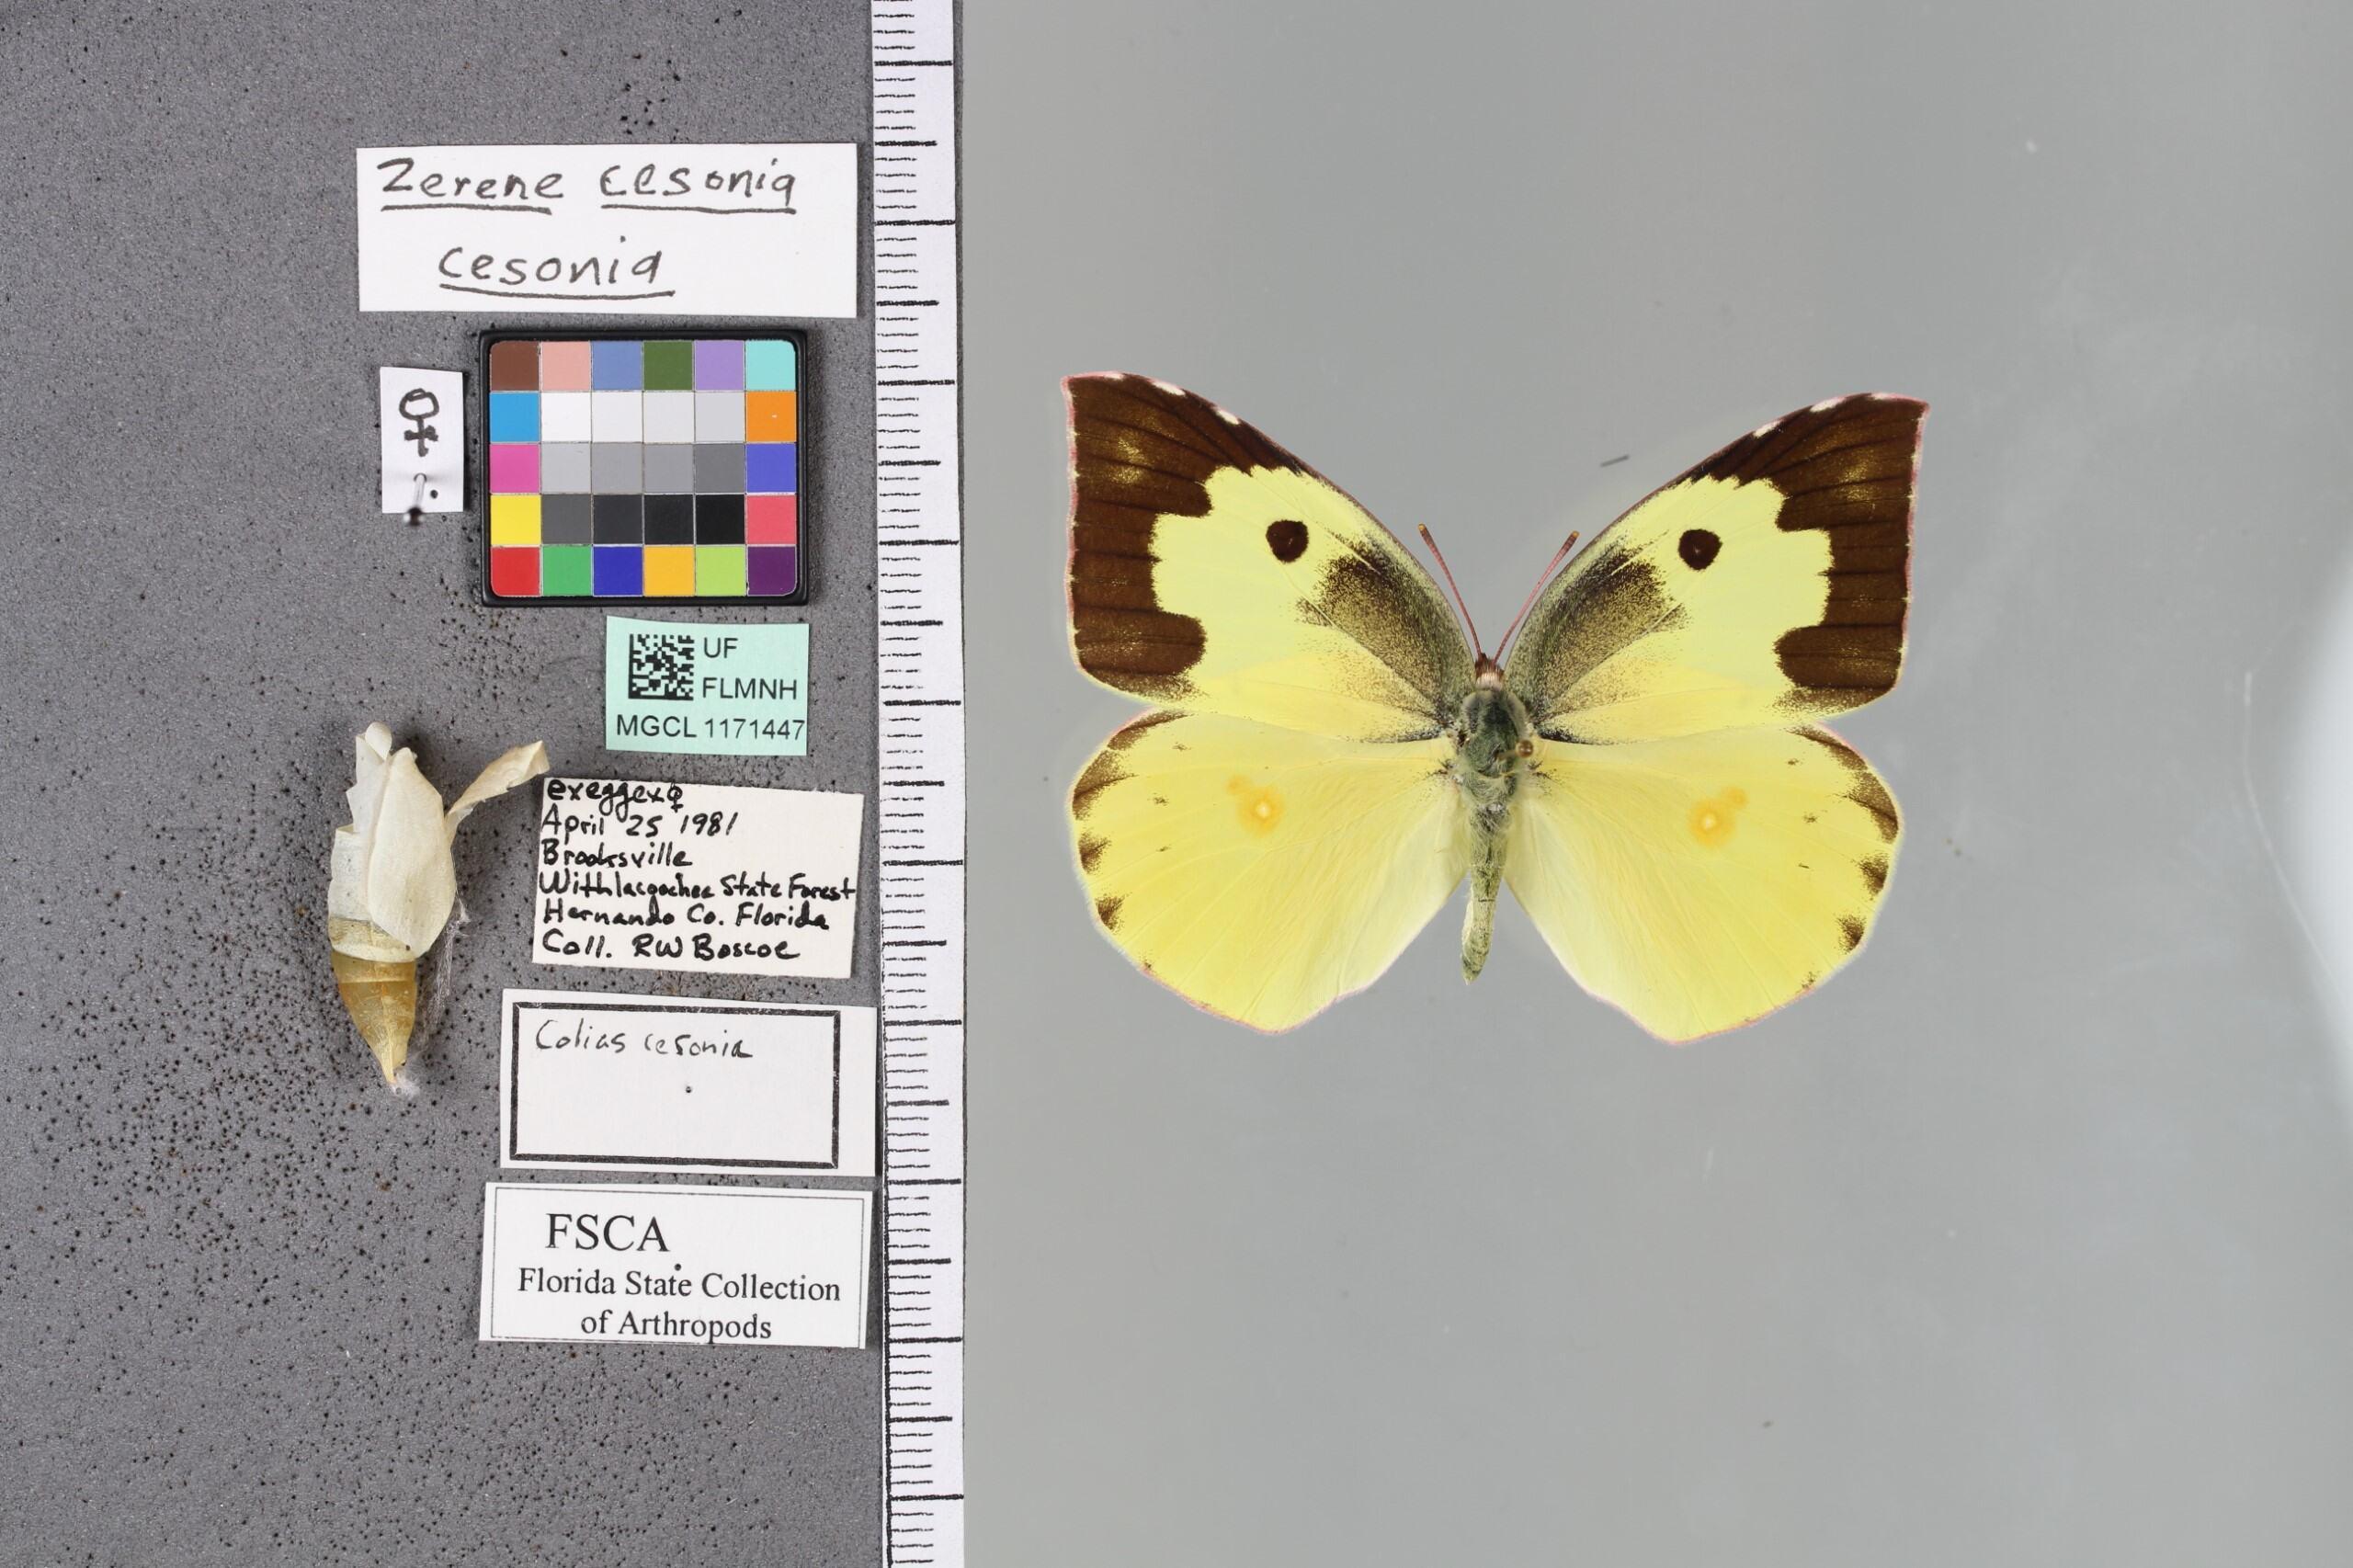 Zerene cesonia
cesonia
♀
UF
FLMNH
MGCL 1171447
exeggex♀
April 25 1981
Brooksville
Withlacoochee State Forest
Hernando Co. Florida
Coll. RW Boscoe
Colias cesonia
FSCA
Florida State Collection
of Arthropods